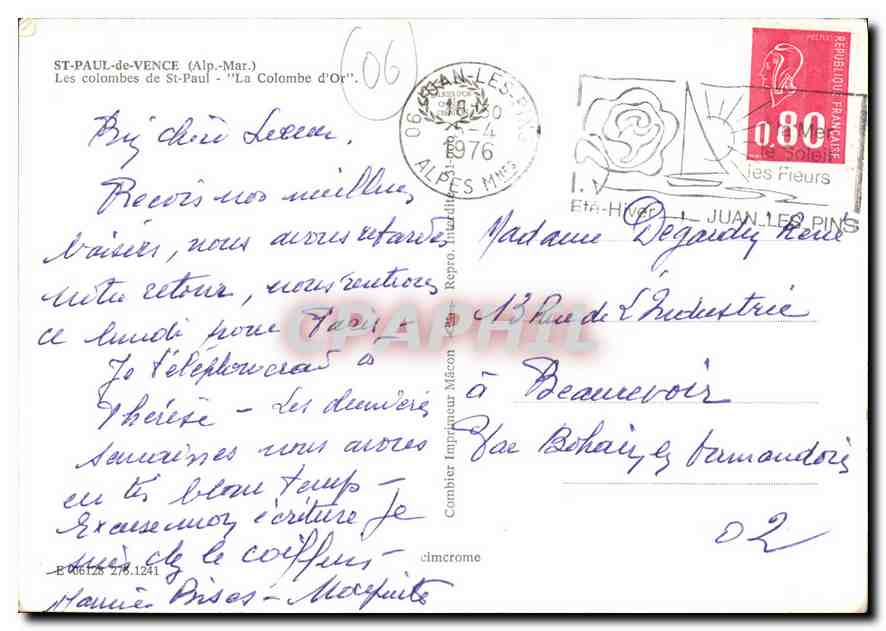 ST-PAUL-de-VENCE (Alp.-Mar.)
Les colombes de St-Paul - "La Colombe d'Or".
06
06 JUAN-LES-PINS
18 30
5-4
1976
ALPES Mmes
REPUBLIQUE FRANÇAISE
0,80
La Mer
le Soleil
les Fleurs
Eté-Hiver JUAN LES PINS
Bien chère
Recois nos meilleurs
baisers, nous avons retardés
notre retour, nous rentrons
ce lundi pour Paris -
Je téléphonerai à
Thérèse - Les dernières
semaines nous avons
eu très beau temps -
Excuse mon écriture je
suis chez le coiffeur -
Bises -
Madame René
13 Rue de L'Industrie
à Beaurevoir
Par Bohain en Vermandois
02
Combier Imprimeur Mâcon "Cim" Repro. Interdite
cimcrome
E 06128 276.1241
CPAPHIL